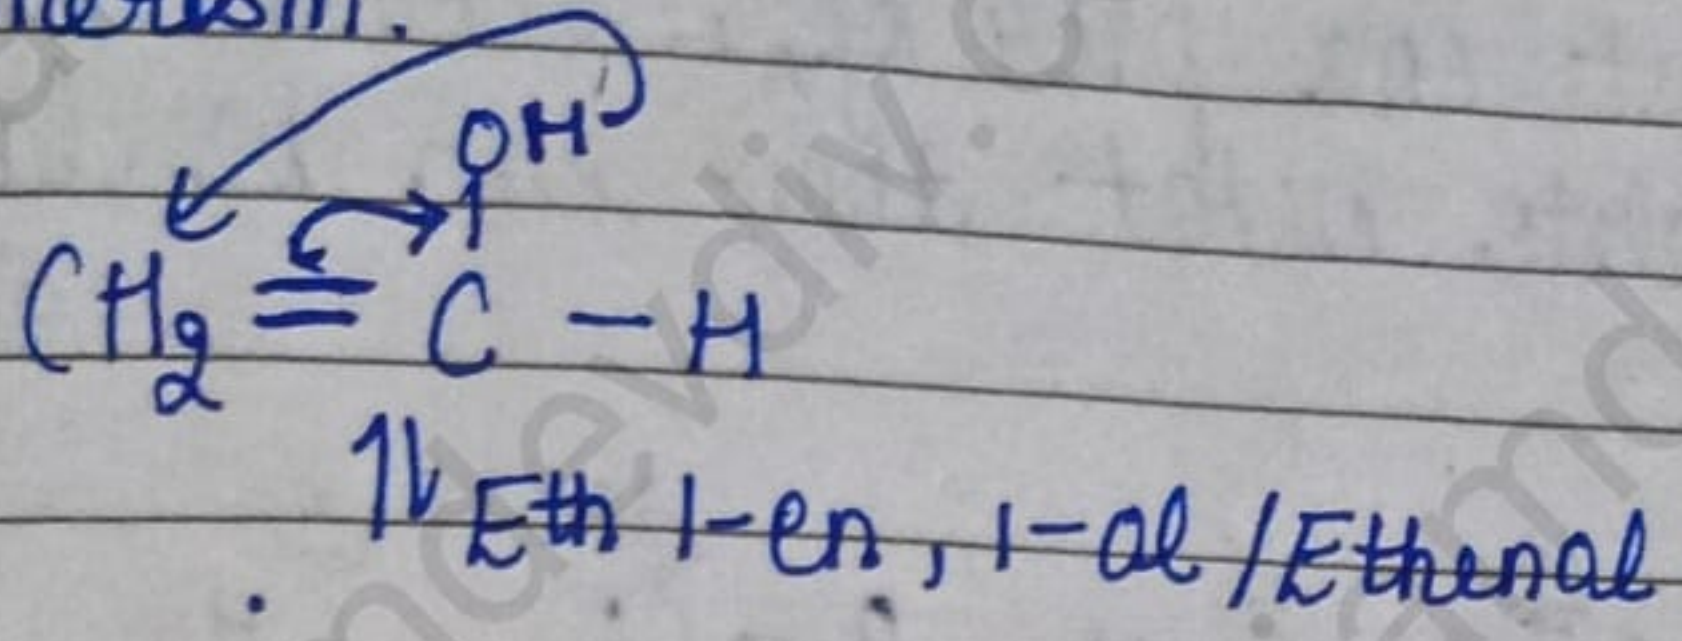 OH
CH₂ = C – H
⇅ Eth 1-en, 1-ol / Ethenol